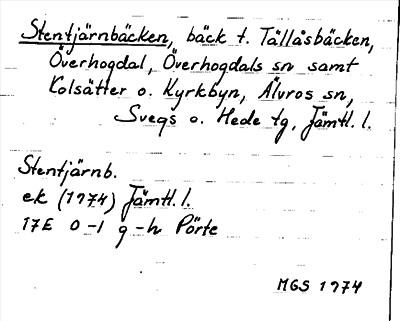 Stentjärnbäcken, bäck t. Tällåsbäcken,
Överhogdal, Överhogdals sn samt
Kolsätter o. Kyrkbyn, Älvros sn,
Svegs o. Hede tg, Jämtl. l.
Stentjärnb.
ek (1974) Jämtl. l.
17E 0-1 g-h Pörte
MGS 1974